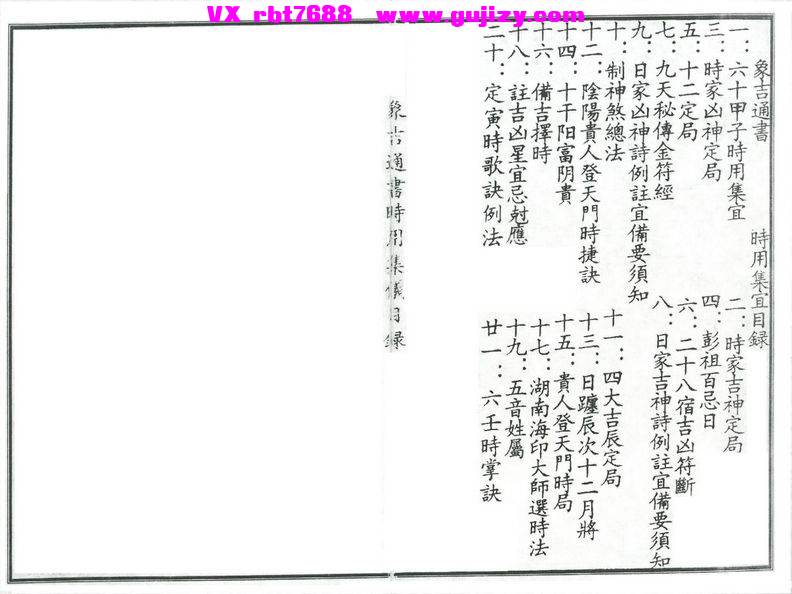 VX rbt7688 www.gujizy.com
象吉通書　時用集宜目録
一：六十甲子時用集宜
二：時家吉神定局
三：時家凶神定局
四：彭祖百忌日
五：十二定局
六：二十八宿吉凶符斷
七：九天秘傳金符經
八：日家吉神詩例註宜備要須知
九：日家凶神詩例註宜備要須知
十：制神煞總法
十一：四大吉辰定局
十二：陰陽貴人登天門時捷訣
十三：日躔辰次十二月將
十四：十干阳富阴貴
十五：貴人登天門時局
十六：備吉擇時
十七：湖南海印大師選時法
十八：註吉凶星宜忌尅應
十九：五音姓屬
二十：定寅時歌訣例法
廿一：六壬時掌訣
象吉通書時用集儀目録